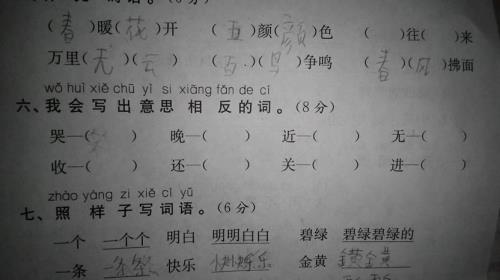 词语。
(春)暖(花)开 (五)颜(颜)色 ( )往( )来
万里(无)(云) (百)(鸟)争鸣 (春)(风)拂面
wǒ huì xiě chū yì si xiāng fǎn de cí
六、我会写出意思相反的词。(8分)
哭—(笑) 晚—( ) 近—( ) 无—( )
收—( ) 还—( ) 关—( ) 进—( )
zhào yàng zi xiě cí yǔ
七、照样子写词语。(6分)
一个 一个个 明白 明明白白 碧绿 碧绿碧绿的
一条 一条条 快乐 快快乐乐 金黄 金黄金黄